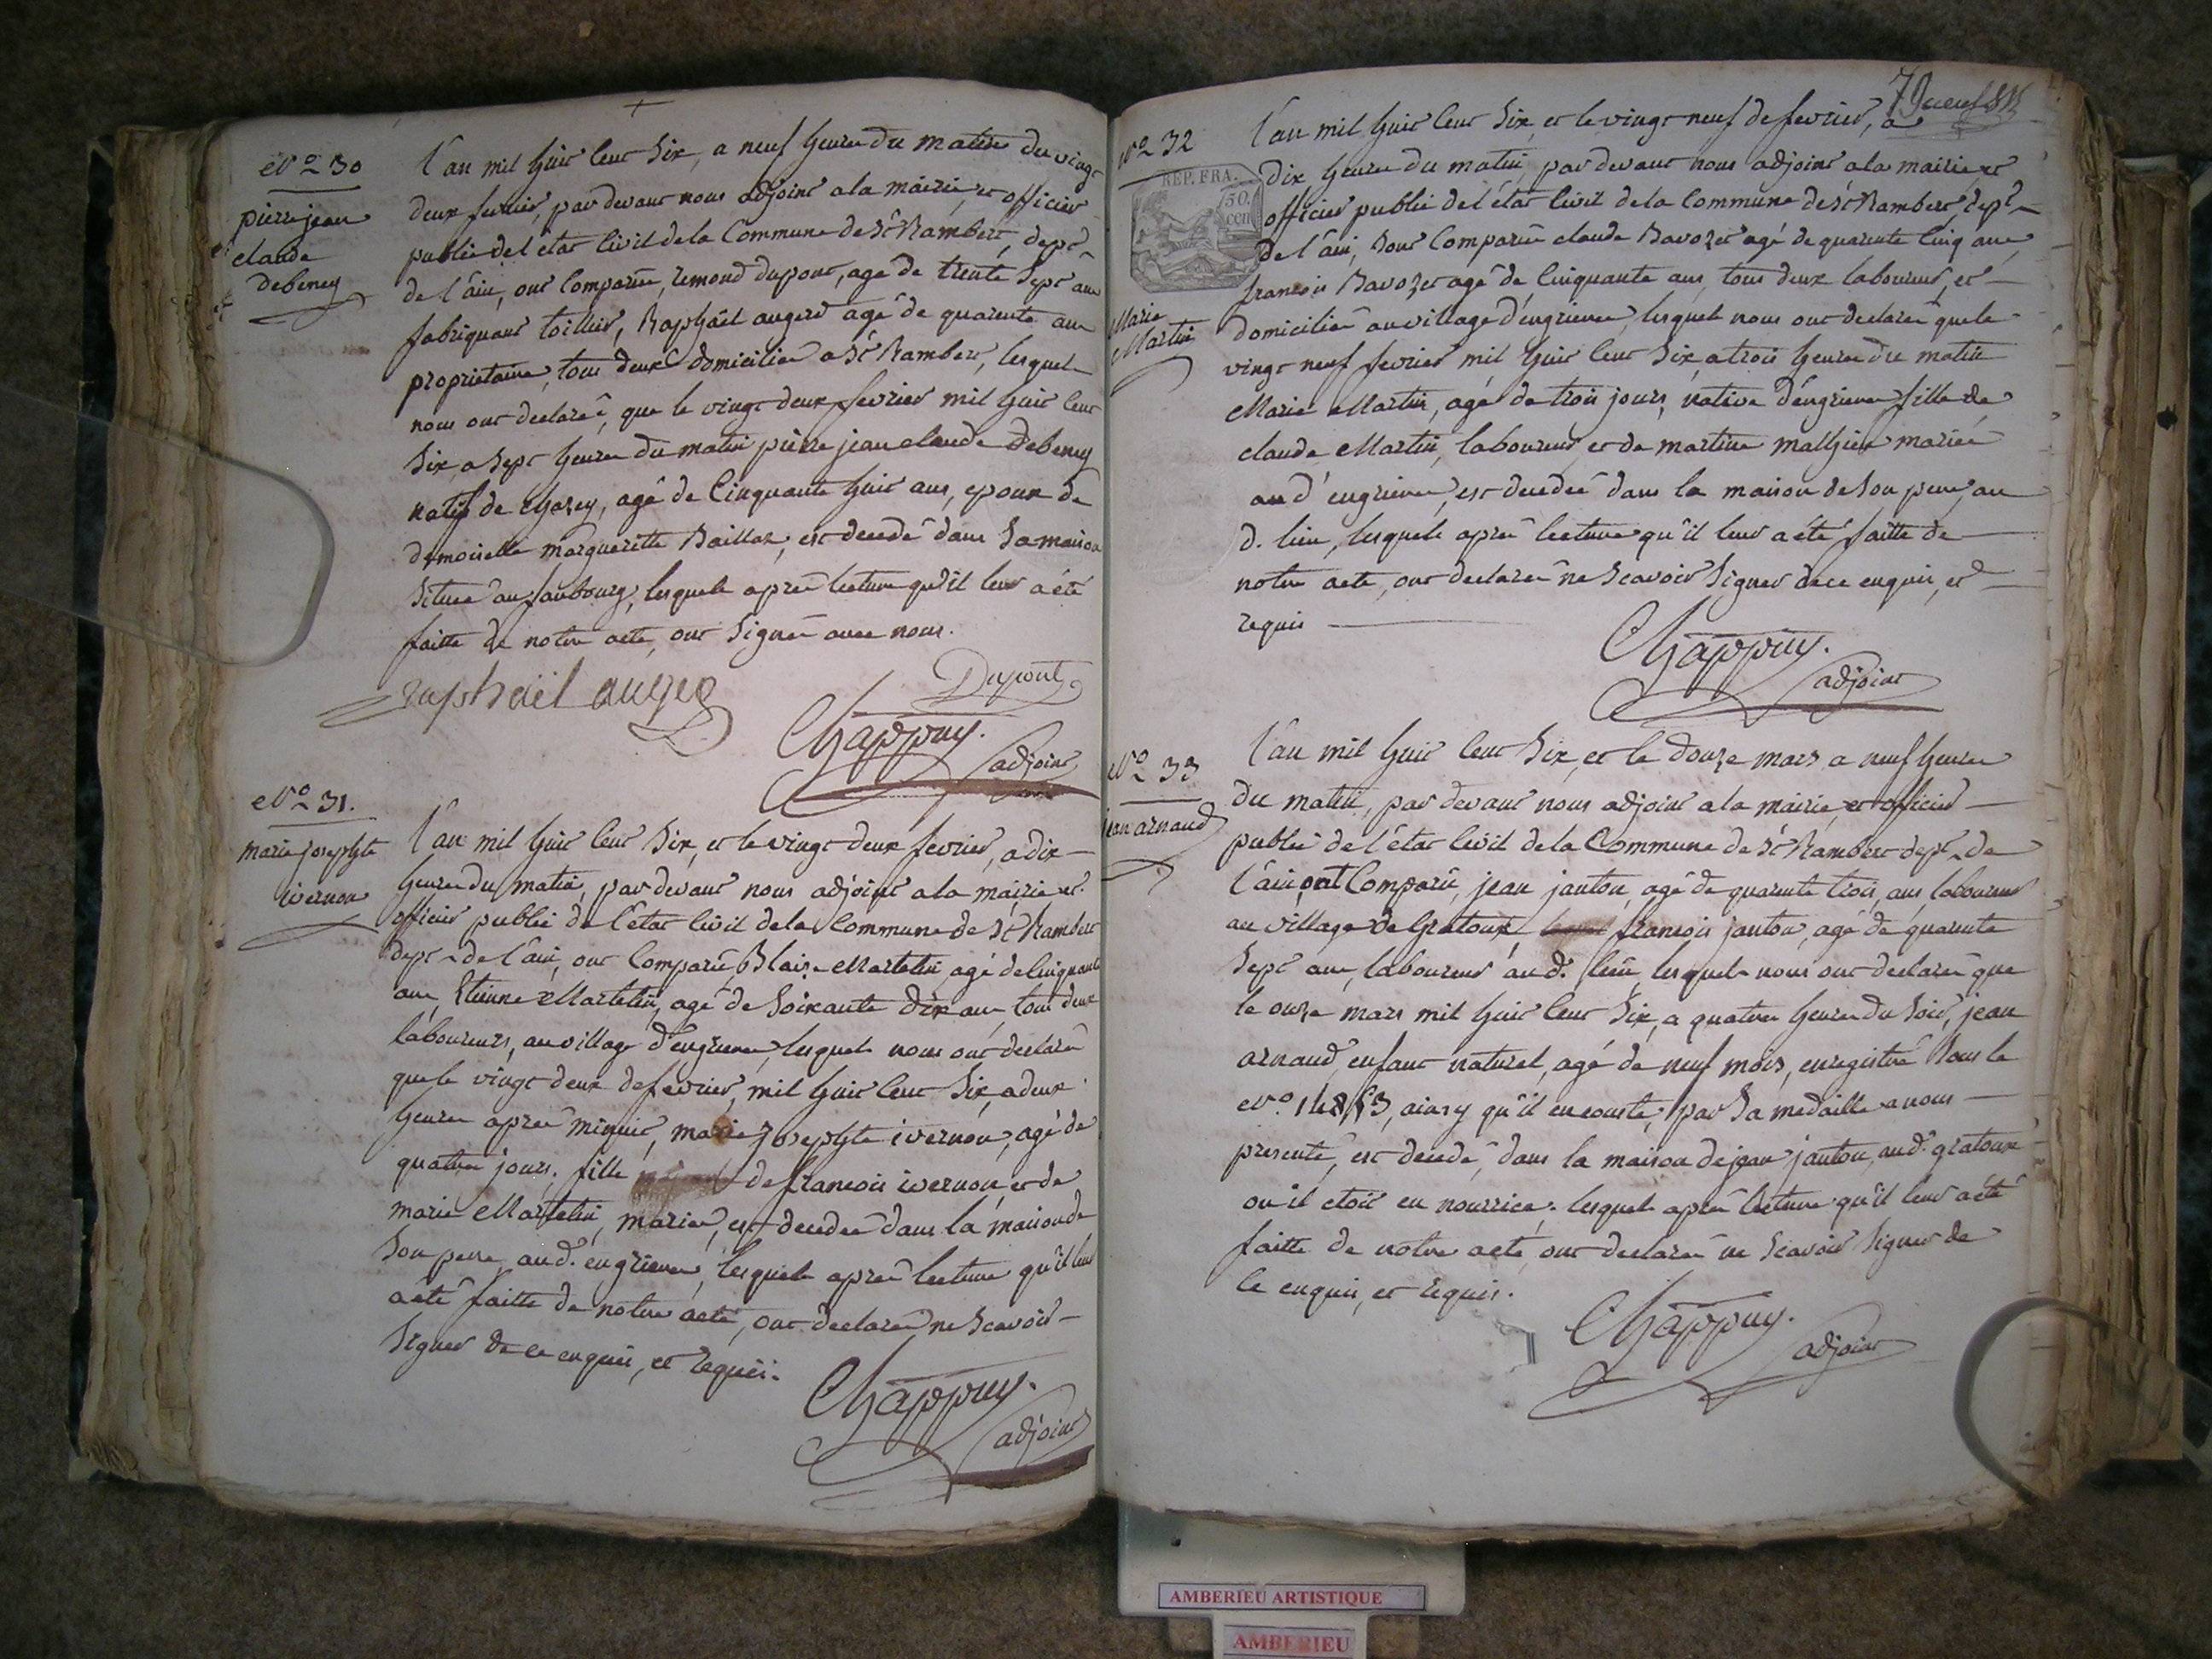 N.o 30
pierre jean
claude
debeney
L'an mil huit cent Six, a neuf heures du matin du vingt
deux fevrier, par devant nous adjoint a la mairie, et officier
public de l'etat Civil de la Commune de St Rambert, dept
de l'ain, ont Comparû, remond dupont, agé de trente Sept ans
fabriquant toillier, Raphäel augerd agé de quarente ans
proprietaire, tous deux domiciliés a St Rambert, lesquels
nous ont declaré, que le vingt deux fevrier mil huit Cent
Six, a Sept heures du matin pierre jean claude debeney
natif de Chazey, agé de Cinquante huit ans, epoux de
demoiselle marguerite Baillod, est decedé dans Sa maison
Située au faubourg, lesquels après lecture qu'il leur a été
faitte de notre acte, ont Signé avec nous.
raphaël auger
Dupont
Chappuy.
adjoint
N.o 31.
marie josephte
ivernon
L'an mil huit Cent Six, et le vingt deux fevrier, a dix
heures du matin, par devant nous adjoint a la mairie et
officier public de l'état Civil de la Commune de St Rambert
dept de l'ain, ont Comparû, Blaise Martelin agé de Cinquante
ans, Etienne Martelin, agé de Soixante dix ans, tous deux
laboureurs, au village d'engrieres, lesquels nous ont declaré
que le vingt deux de fevrier, mil huit Cent Six, a deux
heures après minuit, marie josephte ivernon, agé de
quatre jours, fille de francois ivernon, et de
marie Martelin, mariés, est decedée dans la maison de
Son pere, aud. engrieres, lesquels après lecture qu'il leur
a été faitte de notre acte, ont declaré ne Scavoir
Signer de ce enquis, et requis.
Chappuy.
adjoint
79
N.o 32
REP. FRA.
50.
cen
Marie
Martin
L'an mil huit Cent Six, et le vingt neuf de fevrier, a
dix heures du matin, par devant nous adjoint a la mairie, et
officier public de l'état Civil de la Commune de St Rambert, dept
de l'ain, Sont Comparû claude Ravozet agé de quarente Cinq ans,
francois Ravozet agé de Cinquante ans, tous deux laboureurs, et
domiciliés au village d'engrieres, lesquels nous ont declaré que le
vingt neuf fevrier mil huit Cent Six, a trois heures du matin
Marie Martin, agé de trois jours, native d'engrieres fille de
claude Martin, laboureur et de martine mathieu mariés
au d'engrieres, est decedée dans la maison de Son pere, au
d. lieu, lesquels après lecture qu'il leur a été faitte de
notre acte, ont declaré ne Scavoir Signer de ce enquis, et
requis
Chappuy.
adjoint
N.o 33
jean arnaud
L'an mil huit Cent Six, et le douze mars a neuf heures
du matin, par devant nous adjoint a la mairie, et officier
public de l'état Civil de la Commune de St Rambert dept de
l'ain, ont Comparû, jean janton, agé de quarente trois ans, laboureur
au village de Gratoux, francois janton, agé de quarente
Sept ans, laboureur au d. lieu, lesquels nous ont declaré que
le onze mars mil huit Cent Six, a quatre heures du Soir, jean
arnaud, enfant naturel, agé de neuf mois, enregistré Sous le
N.o, ainsy qu'il en conste, par Sa medaille a nous
presenté, est decedé, dans la maison de jean janton, aud. gratoux
ou il etoit en nourrice, lesquels après lecture qu'il leur a été
faitte de notre acte, ont declaré ne Scavoir Signer de
Ce enquis, et requis.
Chappuy.
adjoint
AMBERIEU ARTISTIQUE
AMBERIEU